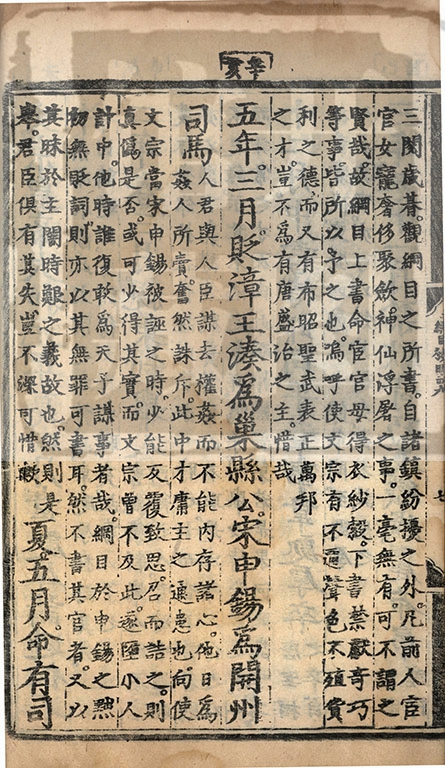 辛亥
三閱歲暮觀綱目之所書自諸鎮紛擾之外凡前人宦
官女寵奢侈聚斂神仙浮屠之事一毫無有可不謂之
賢哉故綱目上書命宦官毋得衣紗縠下書禁獻奇巧
等事皆所以予之也嗚呼使文宗有不邇聲色不殖貨
利之德而又有布昭聖武表正萬邦
之才豈不為有唐盛治之主惜哉
五年三月貶漳王湊為巢縣公宋申錫為開州
司馬
人君與人臣謀去權姦而不能內存諸心他日為
姦人所賣奮然誅斥此中才庸主之通患也向使
文宗當宋申錫被誣之時少能反覆致思召而詰之則
真偽是否或可少得其實而文宗曾不及此遂墮小人
計中他時誰復敢為天子謀事者哉綱目於申錫之黜
初無貶詞則亦以其無罪可書耳然不書其官者又以
其昧於主闇時艱之義故也然則是
舉君臣俱有其失豈不深可惜歟
夏五月命有司